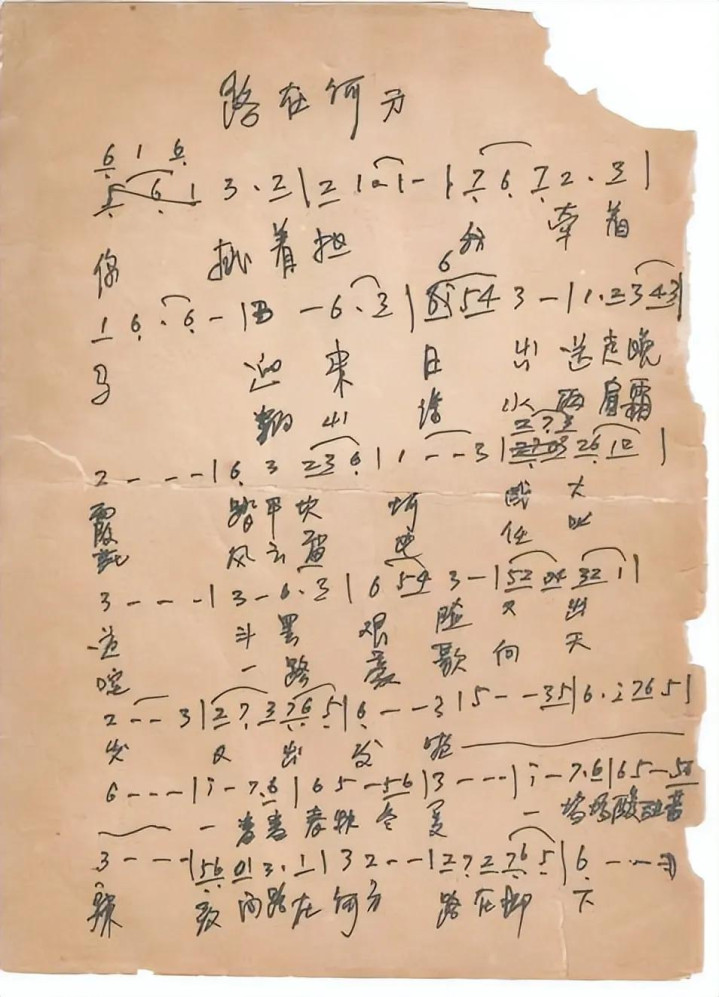 路在何方
6 1 6
5 6 1 3 . 2 | 2 1 1 - | 7 6 7 2 . 3 |
你 挑着担 牵着
6
1 6 . 6 - | 3 - 6 . 3 | 54 3 - | 1 . 2 3 4 3 |
马 迎来日出 送走晚
翻山 水两肩霜
2 7 3
2 - - - | 6 3 2 3 6 | 1 - - 3 | 26 12 |
霞 踏平坎坷 成大
风云雷 任叱
3 - - - | 3 - 6 . 3 | 6 54 3 - | 52 04 32 1 |
道 斗罢艰险 又出
咤 一路豪歌向天
2 - - 3 | 2 7 3 7 6 5 | 6 - - 3 | 5 - - 35 | 6 . i 7 6 5 |
发 又出发 啦
6 - - - | i - 7 . 6 | 6 5 - 56 | 3 - - - | i - 7 . 6 | 6 5 - 56
一 春秋冬夏 一 场场酸甜苦
3 - - - | 56 01 3 . 1 | 3 2 - - | 2 7 2 76 5 | 6 - - -
辣 敢问路在何方 路在脚下